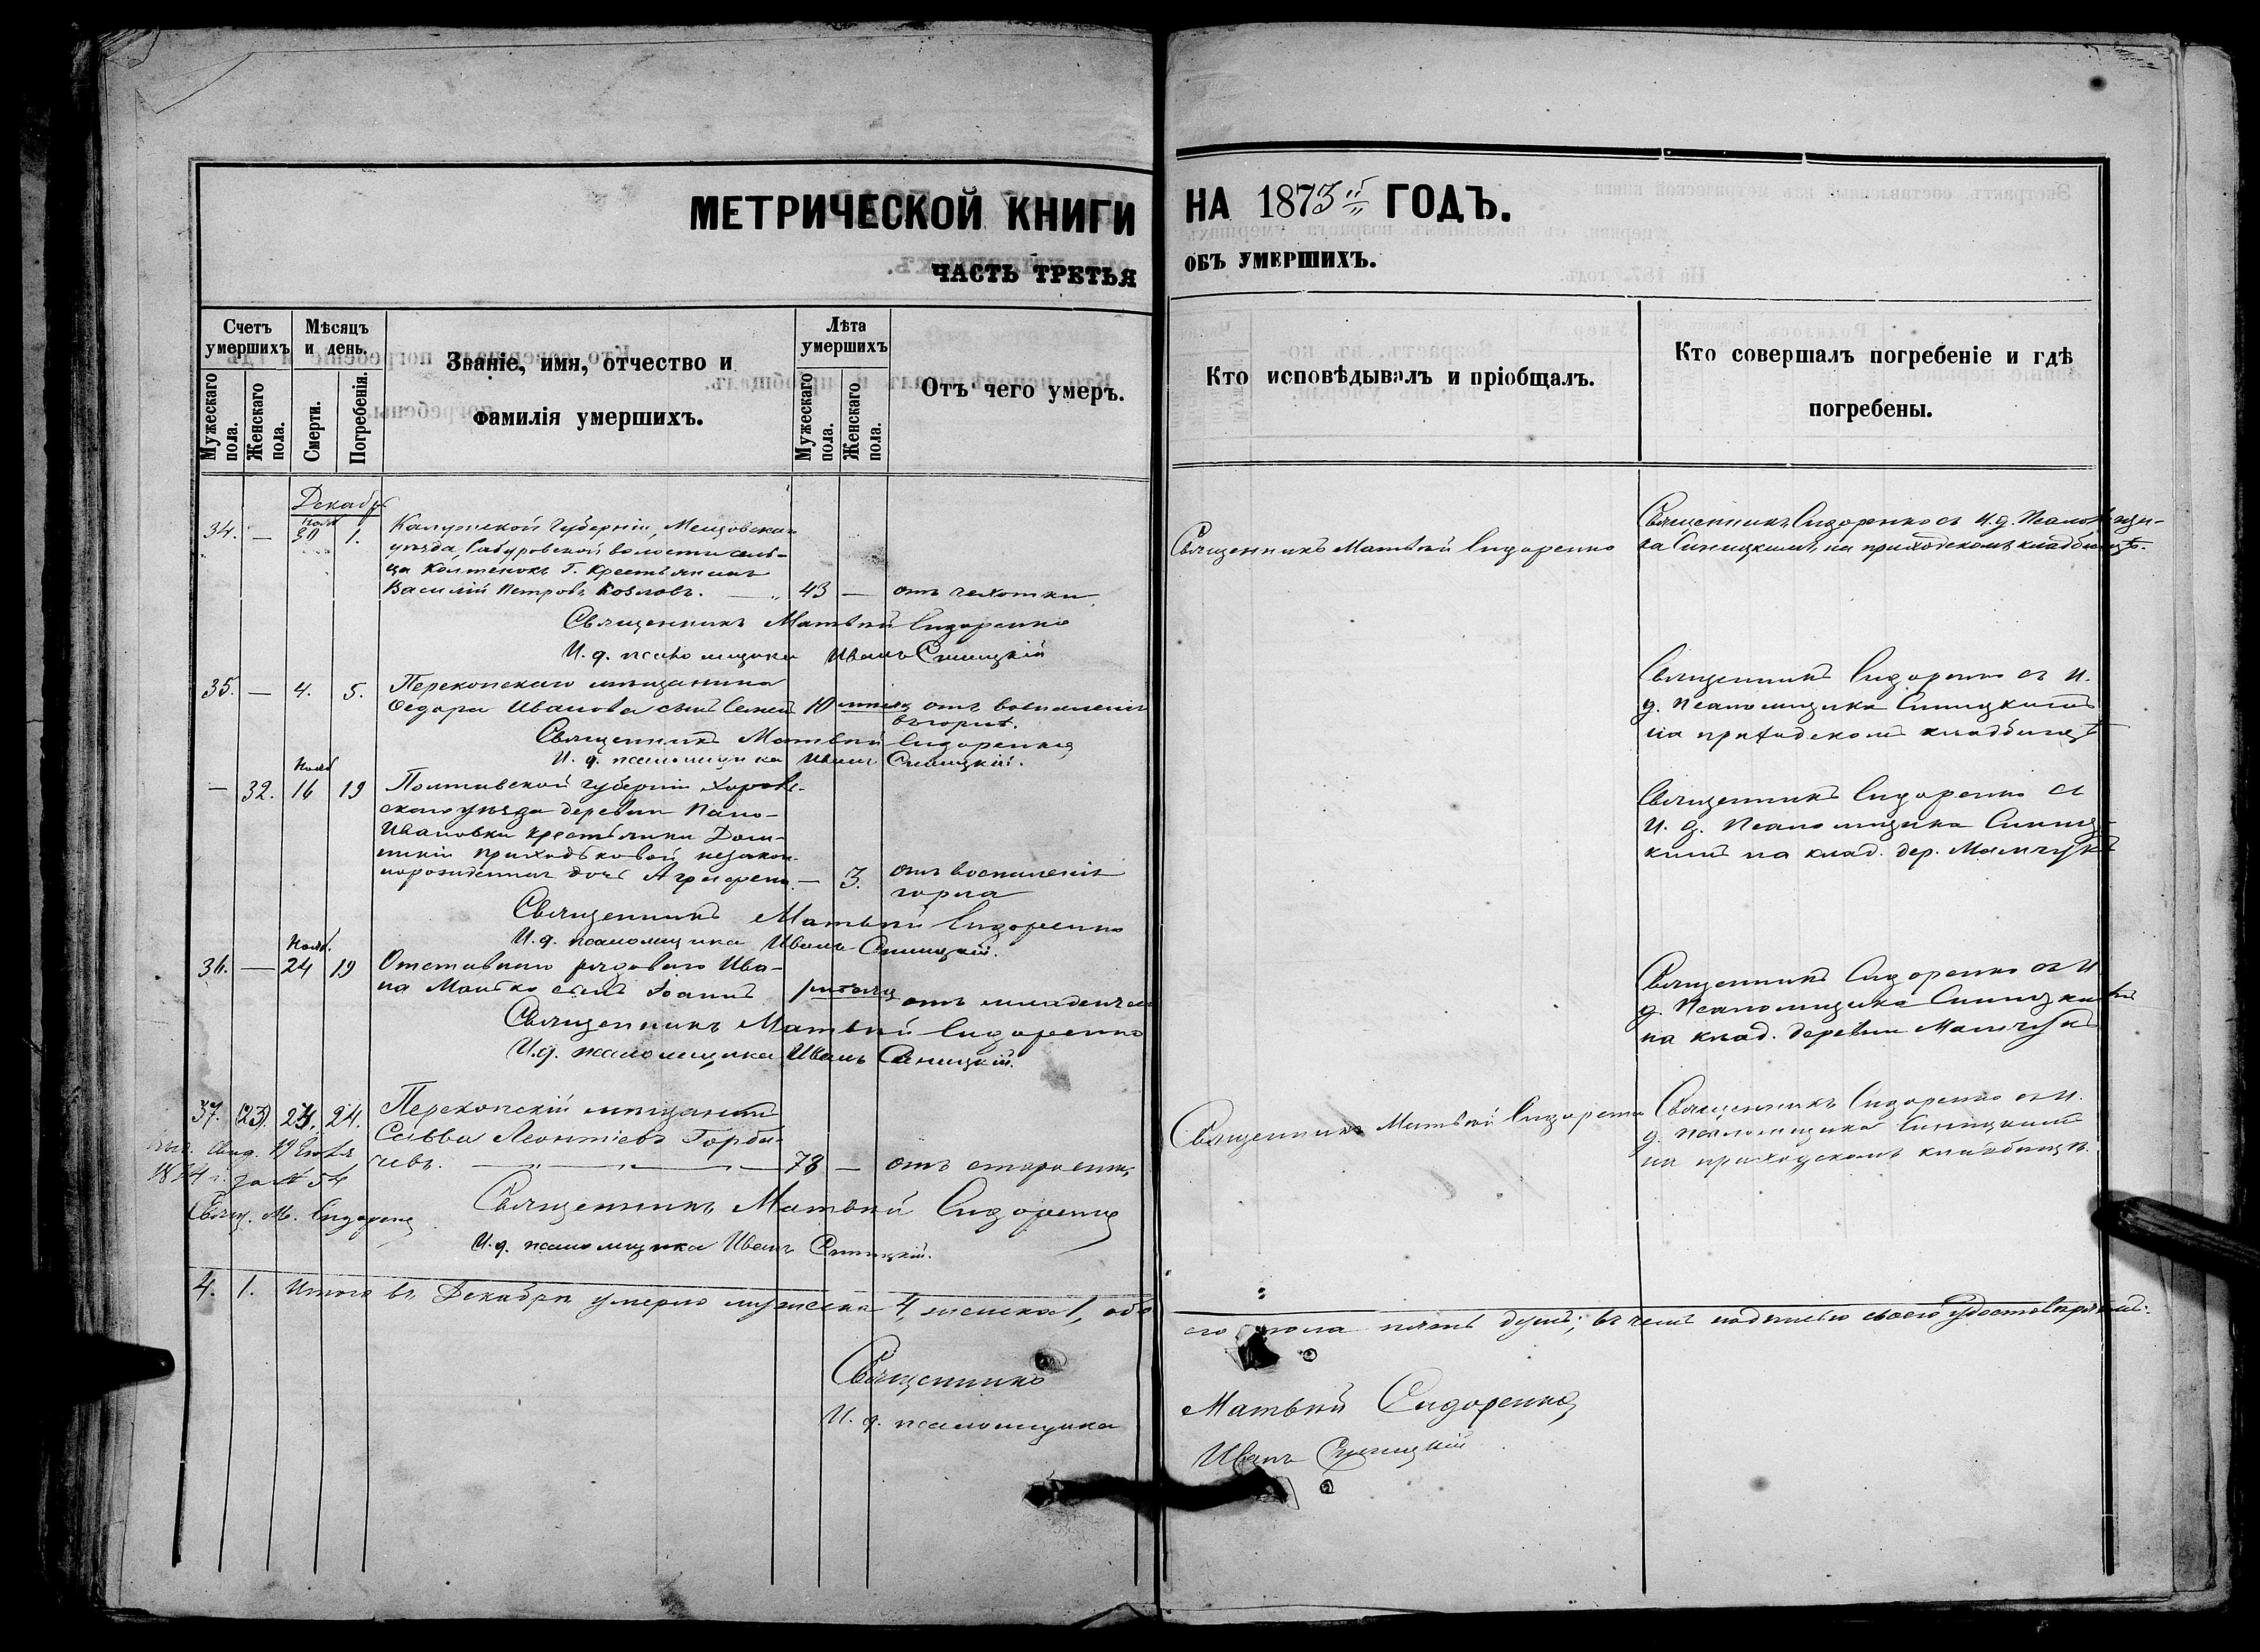 МЕТРИЧЕСКОЙ КНИГИ
ЧАСТЬ ТРЕТЬЯ
Счетъ умершихъ
Мѣсяцъ и день.
Званіе, имя, отчество и
Фамилія умершихъ.
Лѣта умершихъ
Отъ чего умеръ.
Мужескаго пола.
Женскаго пола.
Смерти.
Погребенія.
Мужескаго пола.
Женскаго пола.
Декабрь
34. — Нояб 30 1. Калужской Губерніи, Мещовскаго
уѣзда, Сабуровской волости сель-
ца Г. Крестьянинъ
Василій Петровъ Козловъ. — „ 43 — отъ чахотки
Священникъ Матвѣй Сидоренко
И. д. псаломщика Иванъ Синицкій
35. — 4. 5. Перекопскаго мѣщанина
Ѳедора Иванова сынъ 10 отъ воспаленія
въ горлѣ.
Священникъ Матвѣй Сидоренко
И. д. псаломщика Иванъ Синицкій.
— 32. Нояб 16 19 Полтавской губерніи
скаго уѣзда деревни Пано-
Ивановки крестьянки Дом-
никіи Приходьковой незакон-
норожденная дочь Агрипена. — 3. отъ воспаленія
горла
Священникъ Матвѣй Сидоренко
И. д. псаломщика Иванъ Синицкій.
36. — Нояб. 24 19 Отставнаго рядоваго Ива-
на сынъ Іоаннъ 1 мѣсяц отъ
Священникъ Матвѣй Сидоренко
И. д. псаломщика Иванъ Синицкій.
37. (23). 23. 24. Перекопскій мѣщанинъ
Савва Леонтіевъ Горба-
чевъ. — „ — „ — 78 — отъ старости
свид. 19
1874 г. за № 54
Свящ. М. Сидоренко
Священникъ Матвѣй Сидоренко
И. д. псаломщика Иванъ Синицкій.
4. 1. Итого въ Декабрѣ умерло мужеска 4, женска 1, обо
Священникъ
И. д. псаломщика
НА 1873й ГОДЪ.
ОБЪ УМЕРШИХЪ.
Кто исповѣдывалъ и пріобщалъ.
Кто совершалъ погребеніе и гдѣ
погребены.
Священникъ Матвѣй Сидоренко
Священникъ Сидоренко съ И. д. Псаломщи-
ка Синицкимъ, на приходскомъ кладбищѣ.
Священникъ Сидоренко съ И.
д. Псаломщика Синицкимъ
на приходскомъ кладбищѣ
Священникъ Сидоренко съ
И. д. Псаломщика Синиц-
кимъ на клад. дер.
Священникъ Сидоренко съ И
д. Псаломщика Синицкимъ
на клад. деревни
Священникъ Матвѣй Сидоренко
Священникъ Сидоренко съ И.
д. псаломщика Синицкимъ
на приходскомъ кладбищѣ.
его пола пять душъ; въ чемъ подписью своею удостовѣряемъ:
Матвѣй Сидоренко
Иванъ Синицкій